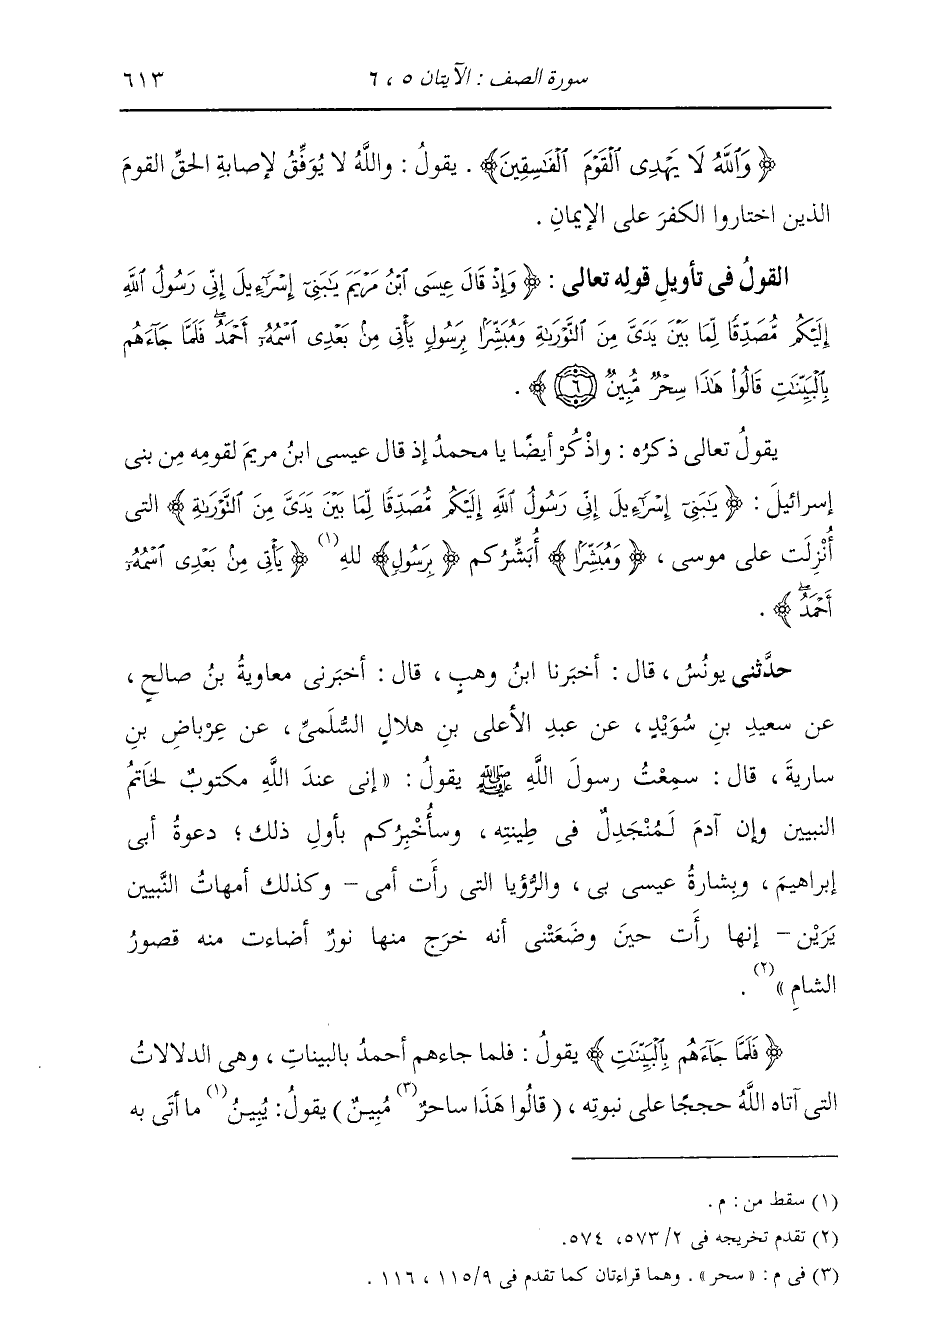 سورة الصف : الآيتان ٥ ، ٦ ٦١٣
﴿ وَٱللَّهُ لَا يَهْدِى ٱلْقَوْمَ ٱلْفَٰسِقِينَ﴾ . يقولُ : واللَّهُ لا يُوَفِّقُ لإصابةِ الحقِّ القومَ
الذين اختاروا الكفرَ على الإيمانِ .
القولُ فى تأويلِ قولِه تعالى : ﴿ وَإِذْ قَالَ عِيسَى ٱبْنُ مَرْيَمَ يَٰبَنِىٓ إِسْرَٰٓءِيلَ إِنِّى رَسُولُ ٱللَّهِ
إِلَيْكُم مُّصَدِّقًا لِّمَا بَيْنَ يَدَىَّ مِنَ ٱلتَّوْرَىٰةِ وَمُبَشِّرًۢا بِرَسُولٍ يَأْتِى مِنۢ بَعْدِى ٱسْمُهُۥٓ أَحْمَدُ ۖ فَلَمَّا جَآءَهُم
بِٱلْبَيِّنَٰتِ قَالُوا۟ هَٰذَا سِحْرٌ مُّبِينٌ ٦ ﴾ .
يقولُ تعالى ذكرُه : واذْكُرْ أيضًا يا محمدُ إذ قال عيسى ابنُ مريمَ لقومِه مِن بنى
إسرائيلَ : ﴿ يَٰبَنِىٓ إِسْرَٰٓءِيلَ إِنِّى رَسُولُ ٱللَّهِ إِلَيْكُم مُّصَدِّقًا لِّمَا بَيْنَ يَدَىَّ مِنَ ٱلتَّوْرَىٰةِ ﴾ التى
أُنْزِلَت على موسى ، ﴿ وَمُبَشِّرًۢا ﴾ أُبَشِّرُكم ﴿ بِرَسُولٍ﴾ للهِ(١) ﴿ يَأْتِى مِنۢ بَعْدِى ٱسْمُهُۥٓ
أَحْمَدُ ۖ ﴾ .
حدَّثنى يونُسُ ، قال : أخبَرنا ابنُ وهبٍ ، قال : أخبَرنى معاويةُ بنُ صالحٍ ،
عن سعيدِ بنِ سُوَيْدٍ ، عن عبدِ الأعلى بنِ هلالٍ السُّلَميِّ ، عن عِرْباضِ بنِ
ساريةَ ، قال : سمِعْتُ رسولَ اللَّهِ ﷺ يقولُ : « إنى عندَ اللَّهِ مكتوبٌ لخَاتمُ
النبيين وإن آدمَ لَمُنْجَدِلٌ فى طِينتِه ، وسأُخْبِرُكم بأولِ ذلك ؛ دعوةُ أبى
إبراهيمَ ، وبِشارةُ عيسى بى ، والرُّؤيا التى رأَت أمى – وكذلك أمهاتُ النَّبيين
يَرَيْن – إنها رأَت حينَ وضَعَتْنى أنه خرَج منها نورٌ أضاءت منه قصورُ
الشامِ »(٢) .
﴿ فَلَمَّا جَآءَهُم بِٱلْبَيِّنَٰتِ ﴾ يقولُ : فلما جاءهم أحمدُ بالبيناتِ ، وهى الدلالاتُ
التى آتاه اللَّهُ حججًا على نبوتِه ، ( قالُوا هَذَا ساحرٌ(٣) مُبينٌ ) يقولُ : يُبِينُ(١) ما أتَى به
(١) سقط من : م .
(٢) تقدم تخريجه فى ٢/ ٥٧٣، ٥٧٤.
(٣) فى م : « سحر » . وهما قراءتان كما تقدم فى ١١٥/٩ ، ١١٦ .